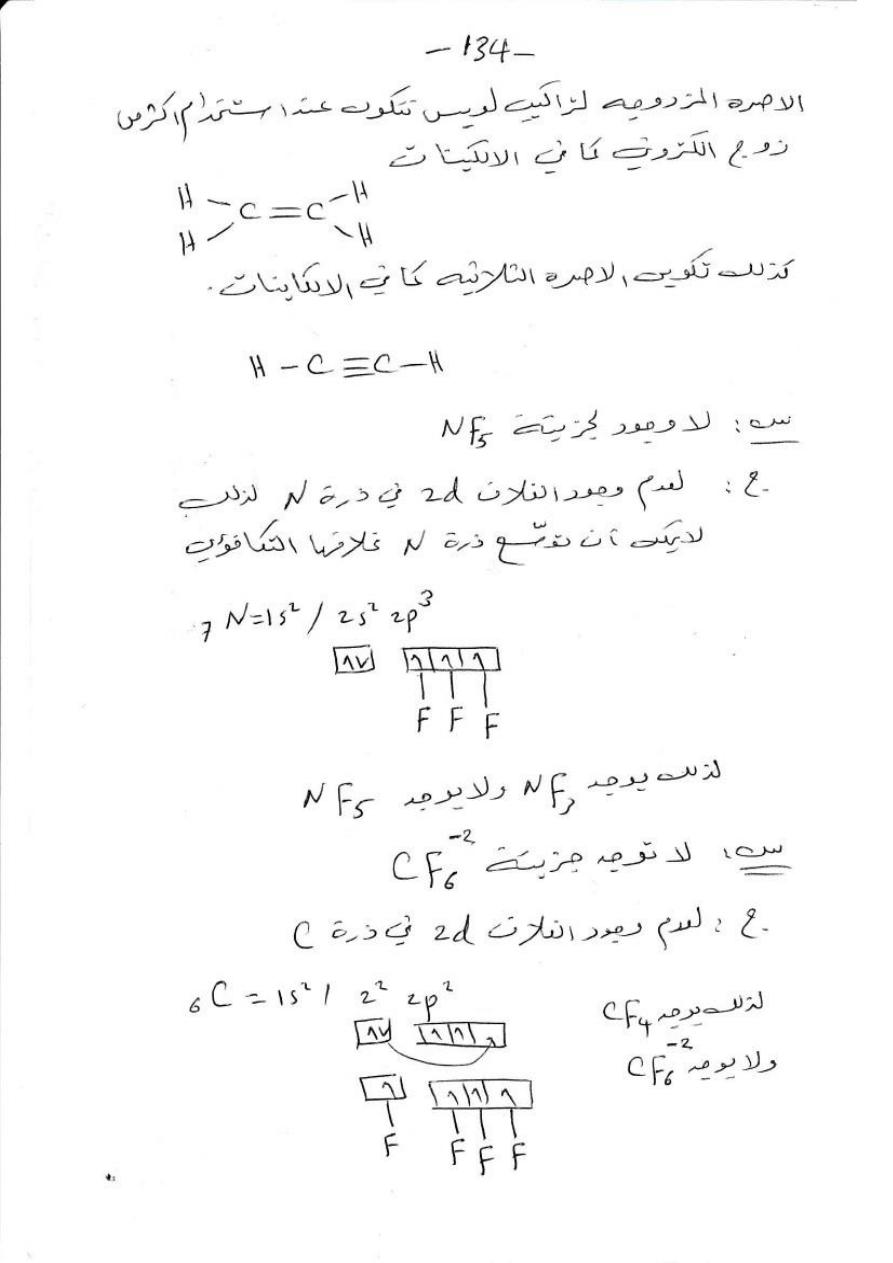 - 134 -
الاصره المزدوجه لتراكيب لويس تتكون عند استخدام اكثر من
زوج الكتروني كما في الالكينات
H H
C = C
H H
كذلك تكوين الاصره الثلاثيه كما في الالكاينات.
H - C ≡ C - H
س: لا وجود لجزيئة NF5
ج: لعدم وجود الغلاف 2d في ذرة N لذلك
لا يمكن أن توسّع ذرة N غلافها التكافؤي
7 N = 1s² / 2s² 2p³
F F F
لذلك يوجد NF3 ولا يوجد NF5
س: لا توجد جزيئة CF6⁻²
ج: لعدم وجود الغلاف 2d في ذرة C
6 C = 1s² / 2² 2p²
لذلك يوجد CF4
ولا يوجد CF6⁻²
F F F F